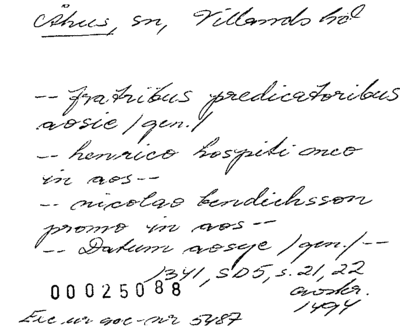 Åhus, sn, Villands hd
-- fratribus predicatoribus
aosie /gen./
-- henrico hospiti meo
in aos --
-- nicolao bendichsson
promo in aos --
-- Datum aosye /gen./ --
1341, SD5, s. 21, 22
avskr.
1494
00025088
Exc. ur acc-nr 5487